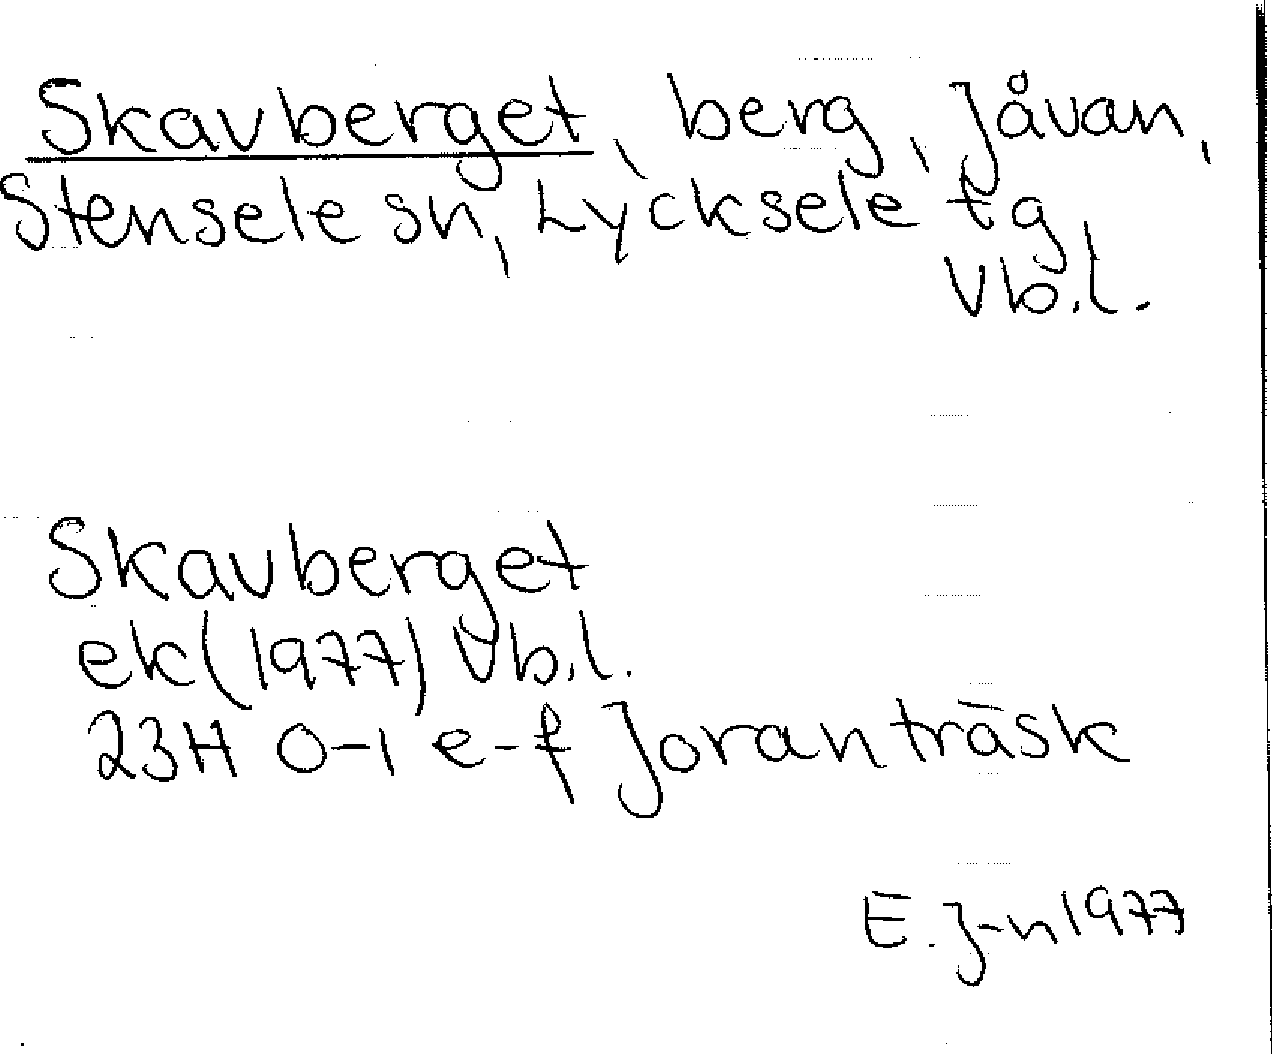 Skavberget, berg, Jåvan,
Stensele sn, Lycksele tg
Vb.l.
Skavberget
ek (1977) Vb.l.
23H 0-1 e-f Joranträsk
E. J-n 1977